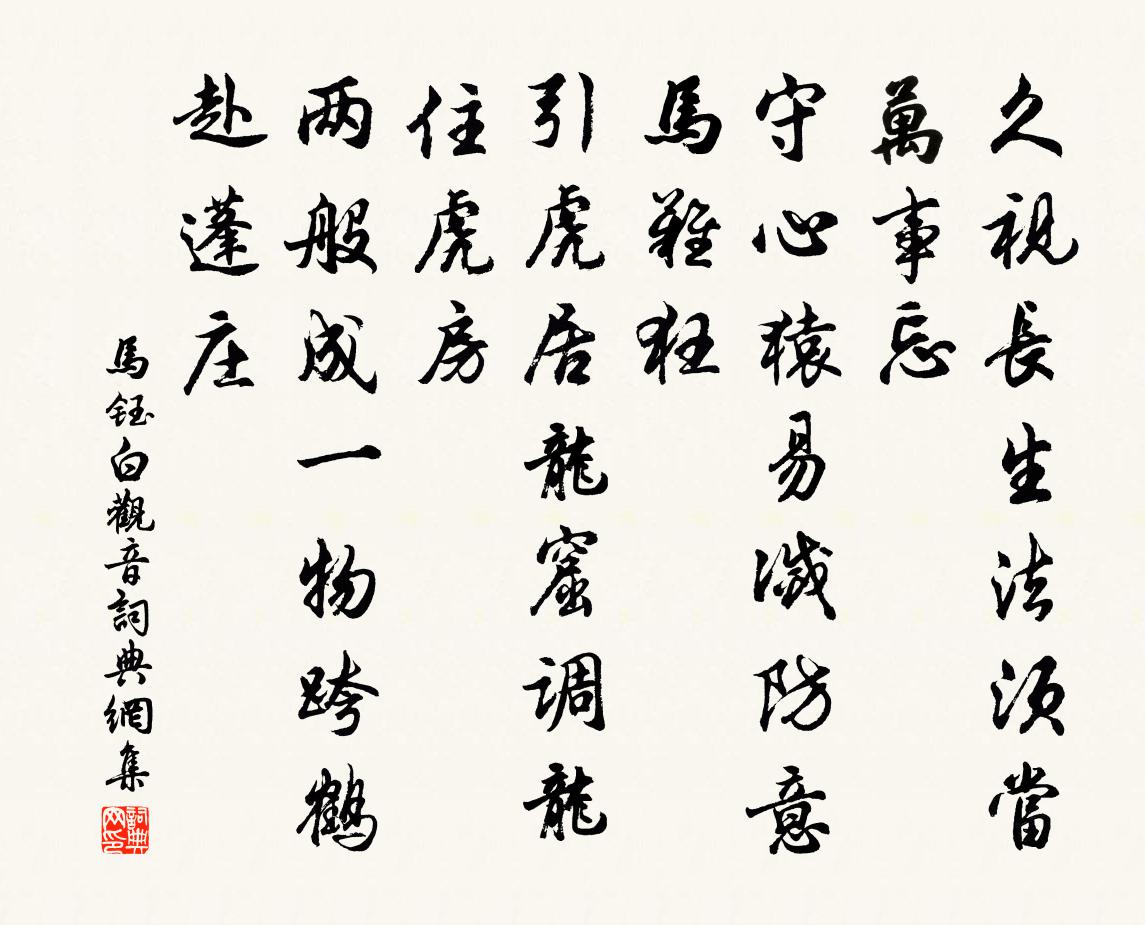 久視長生法須當
萬事忘
守心猿易滅防意
馬難狂
引虎居龍窟調龍
住虎房
两般成一物跨鶴
赴蓬庄
馬鈺白觀音詞典網集
詞典網印